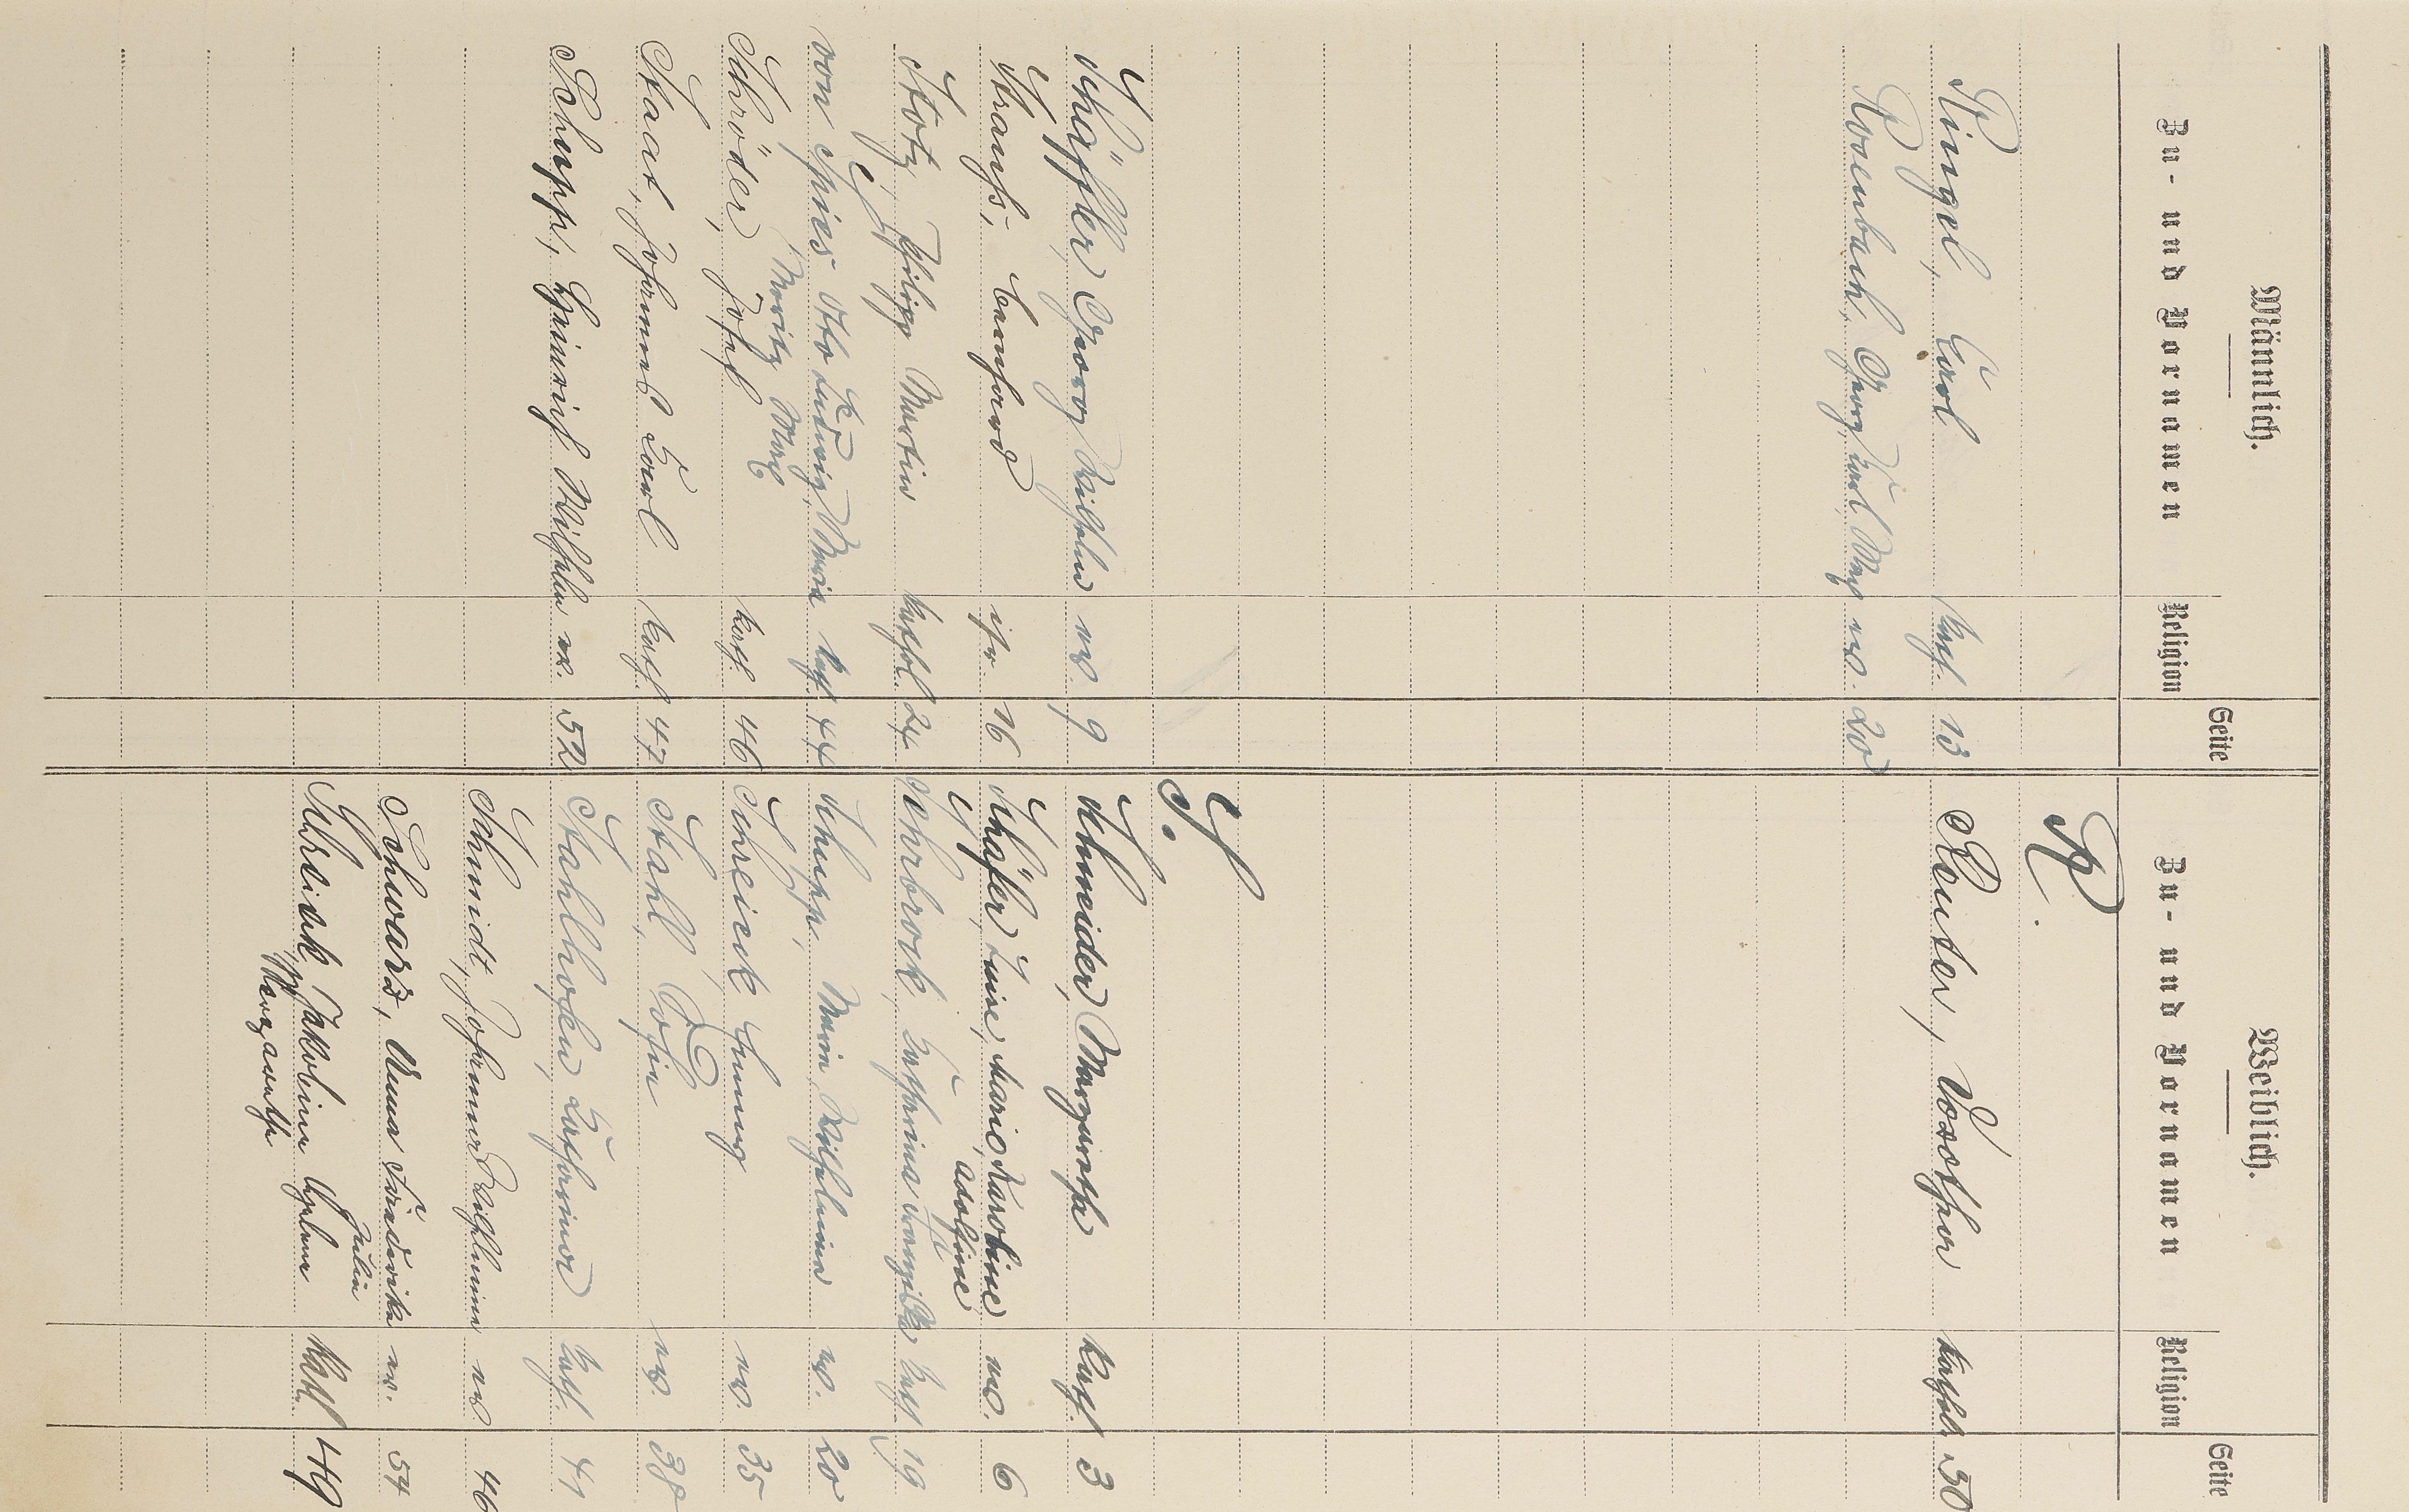 Männlich.
Weiblich.
Zu- und Vornamen Religion Seite
Zu- und Vornamen Religion Seite
R.
Ringel, Carl kath. 13
Reuter, Dorothea kathol. 50
Rosenbach, Georg, Carl, Max ev. 20
S.
Schäffler, Georg Wilhelm ev. 9
Schneider, Margaretha kath. 3
Strauß, Bernhard isr. 16
Schäfer, Luise, Marie, Karoline ev. 6
Adolfine
Stotz, Philipp Martin kathol. 24
Schrbrock, Katharina kath 19
von Spies Otto Ludwig, Maria kath 44
Moritz Max
Schupp, Maria Wilhelmina ev. 20
Schröder, Josef kath. 46
Schreick Henny ev. 35
Staat, Johann Carl kath. 47
Stahl, Sofia ev. 38
Schupp, Heinrich Wilhelm ev. 52
Stahlhofen, Katharina kath. 41
Schmidt, Johanna Wilhelmina ev. 46
Schwarz, Anna Friederike ev. 54
Julia
Schreick, Jakobina Helena kath 49
Margaretha